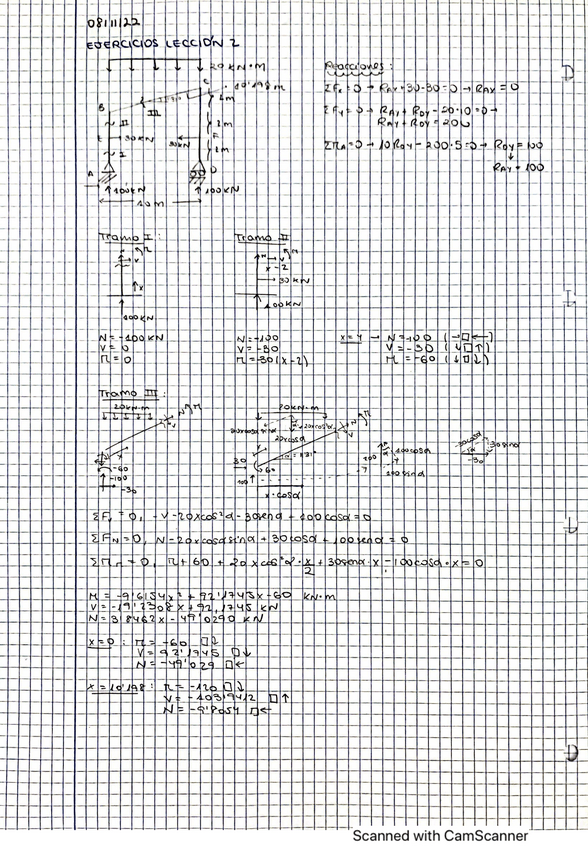 08/11/22
EJERCICIOS LECCIÓN 2
20 KN·m
10'198 m
C
B
III
2m
II
2m
E
30KN
30KN
F
I
2m
A
D
100KN
100KN
10m
Reacciones:
ΣFx=0 → RAx+30-30=0 → RAx=0
ΣFy=0 → RAy+RDy-20·10=0→
RAy+RDy=200
ΣMA=0 → 10RDy-200·5=0→ RDy=100
↓
RAy=100
Tramo I:
M
V
x
100KN
N=-100 KN
V=0
M=0
Tramo II
N
M
V
x-2
30KN
100KN
N=-100
V=-30
M=-30(x-2)
x=4 → N=-100 (→□←)
V=-30 (↓□↑)
M=-60 (↓□↓)
Tramo III:
20KN·m
N
M
V
x
-60
-100
-30
20KN·m
20xcosα
N
M
V
30
60
100
x·cosα
100
100cosα
100senα
30cosα
30senα
-30
ΣFv=0, -V-20xcos²α-30senα+100cosα=0
ΣFN=0, N-20xcosαsenα+30cosα+100senα=0
ΣM=0, M+60+20xcos²α·x/2+30senα·x-100cosα·x=0
M=-9'6154x²+92'1745x-60 KN·m
V=-19'2308x+92,1745 KN
N=3'8462x-49'0290 KN
x=0: M=-60 □↓
V=92'1745 □↓
N=-49'029 □←
x=10'198: M=-120 □↓
V=-103'9412 □↑
N=-9'8054 □←
Scanned with CamScanner